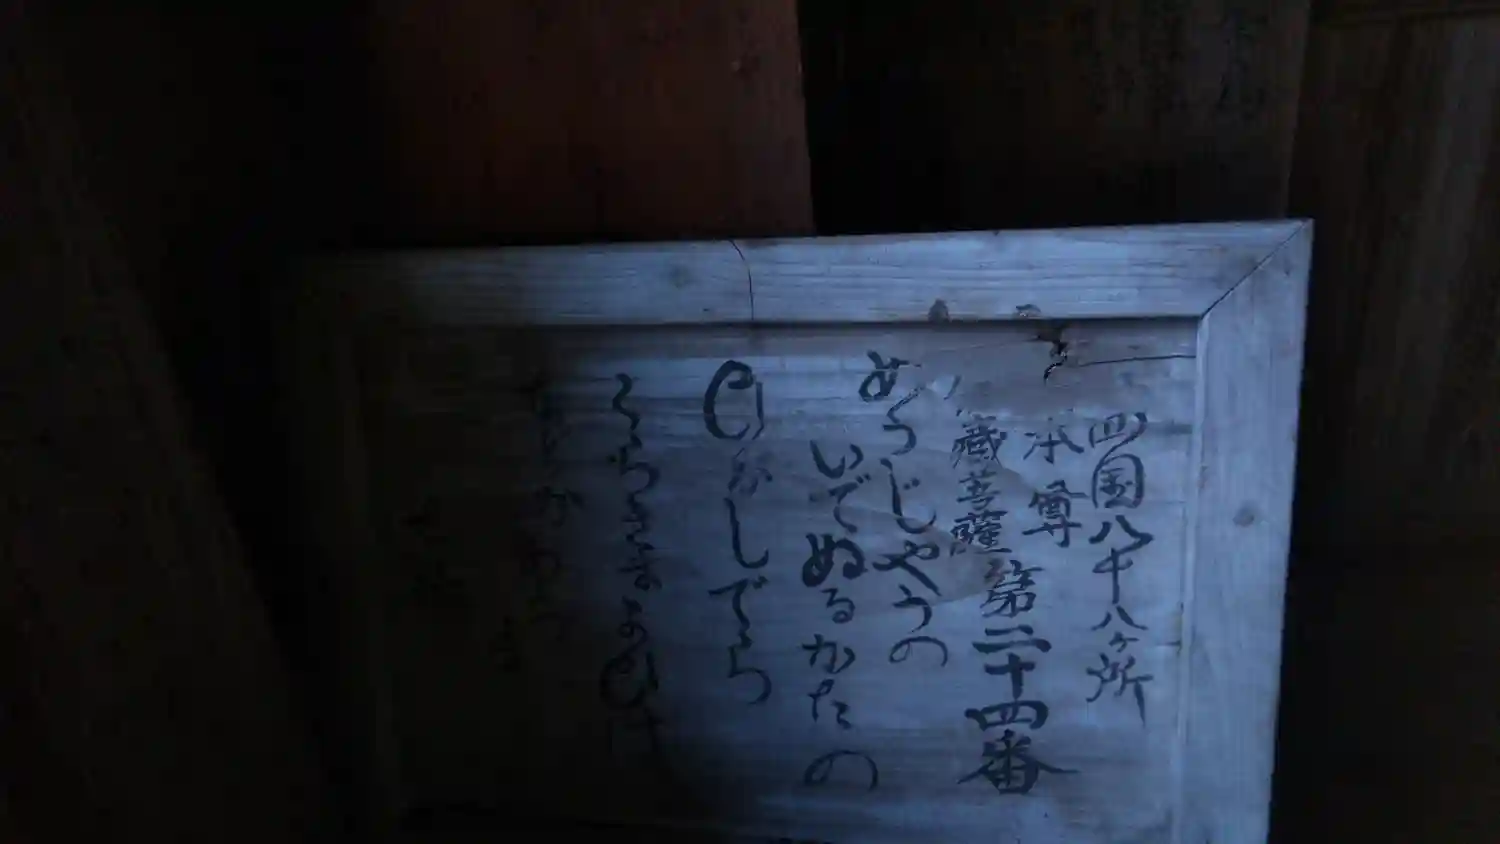 四国八十八ヶ所
本尊
蔵菩薩 第二十四番
めうじやうの
いでぬるかたの
ひがしでら
くらきまよひは